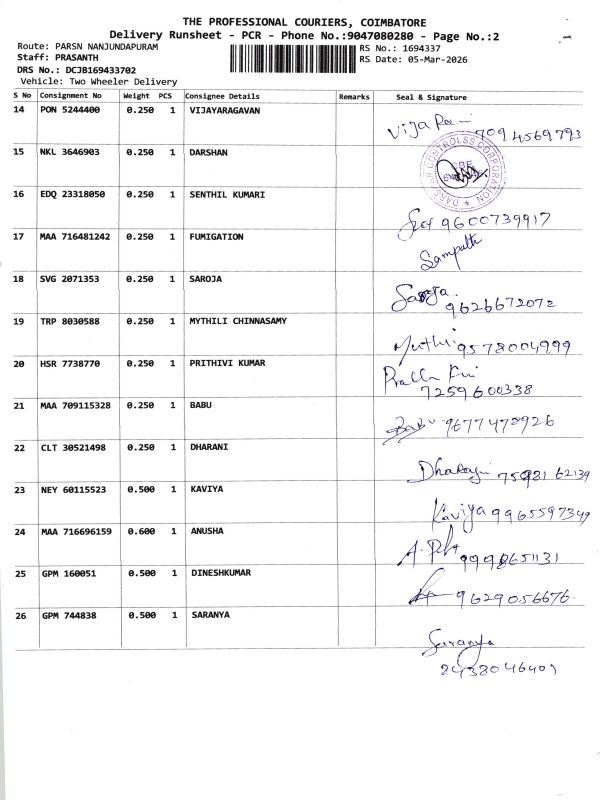 THE PROFESSIONAL COURIERS, COIMBATORE
Delivery Runsheet - PCR - Phone No.:9047080280 - Page No.:2
Route: PARSN NANJUNDAPURAM
RS No.: 1694337
Staff: PRASANTH
RS Date: 05-Mar-2026
DRS No.: DCJB169433702
Vehicle: Two Wheeler Delivery
S No Consignment No Weight PCS Consignee Details Remarks Seal & Signature
14 PON 5244400 0.250 1 VIJAYARAGAVAN
7094569793
15 NKL 3646903 0.250 1 DARSHAN
CONTROLSS CORPORATION
CBE
16 EDQ 23318050 0.250 1 SENTHIL KUMARI
9600739917
17 MAA 716481242 0.250 1 FUMIGATION
Sampath
18 SVG 2071353 0.250 1 SAROJA
Saroja.
9626672072
19 TRP 8030588 0.250 1 MYTHILI CHINNASAMY
9578004999
20 HSR 7738770 0.250 1 PRITHIVI KUMAR
7259600338
21 MAA 709115328 0.250 1 BABU
Babu 9677478926
22 CLT 30521498 0.250 1 DHARANI
Dharani 75981 62139
23 NEY 60115523 0.500 1 KAVIYA
Kaviya 9965597349
24 MAA 716696159 0.600 1 ANUSHA
25 GPM 160051 0.500 1 DINESHKUMAR
9629056676
26 GPM 744838 0.500 1 SARANYA
Saranya